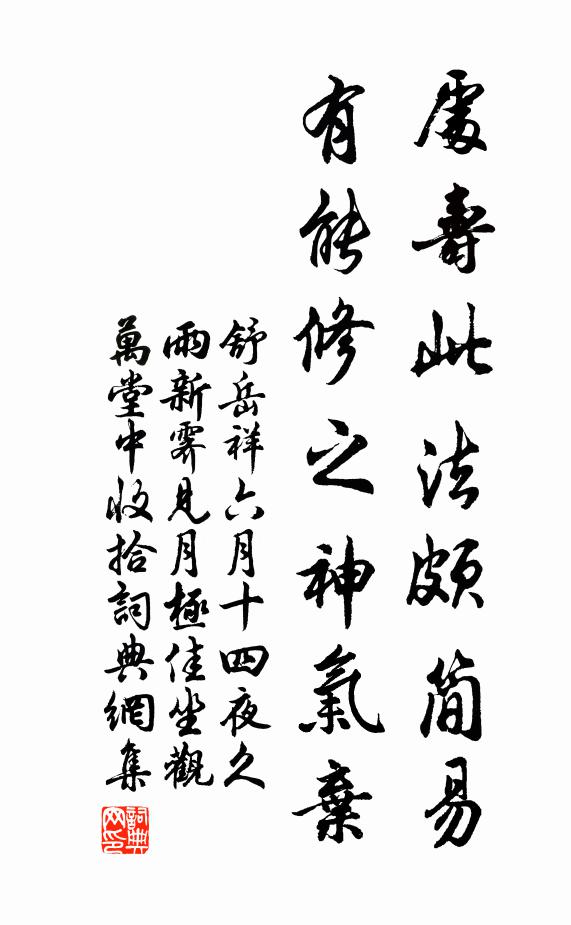 處壽此法頗簡易
有能修之神氣棄
舒岳祥六月十四夜久
雨新霽見月極佳坐觀
萬堂中收拾詞典網集
詞典網印